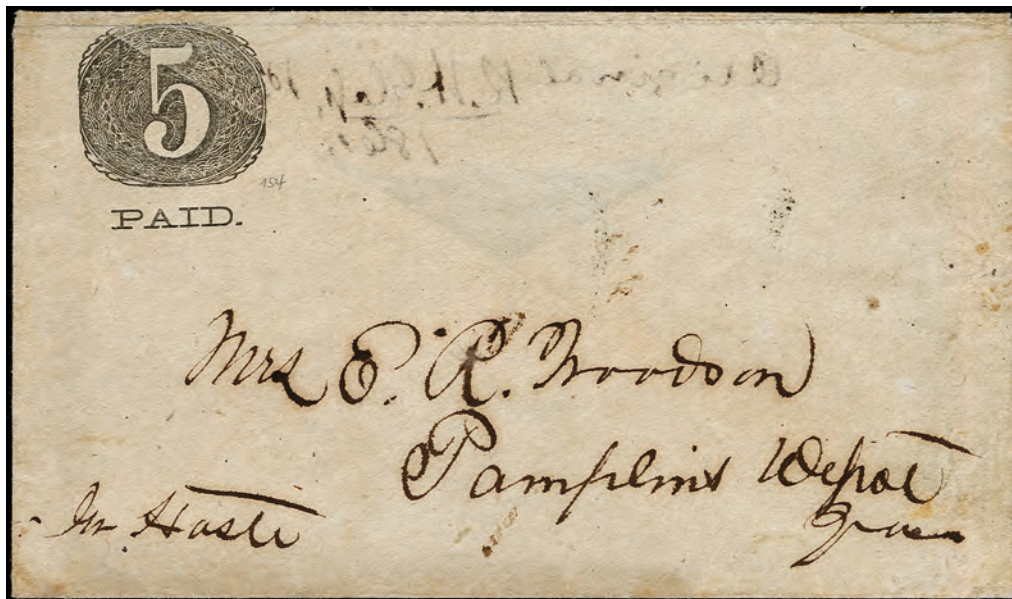 5
154
PAID.
Mrs E. R. Woodson
Pamplins Depot
In Haste